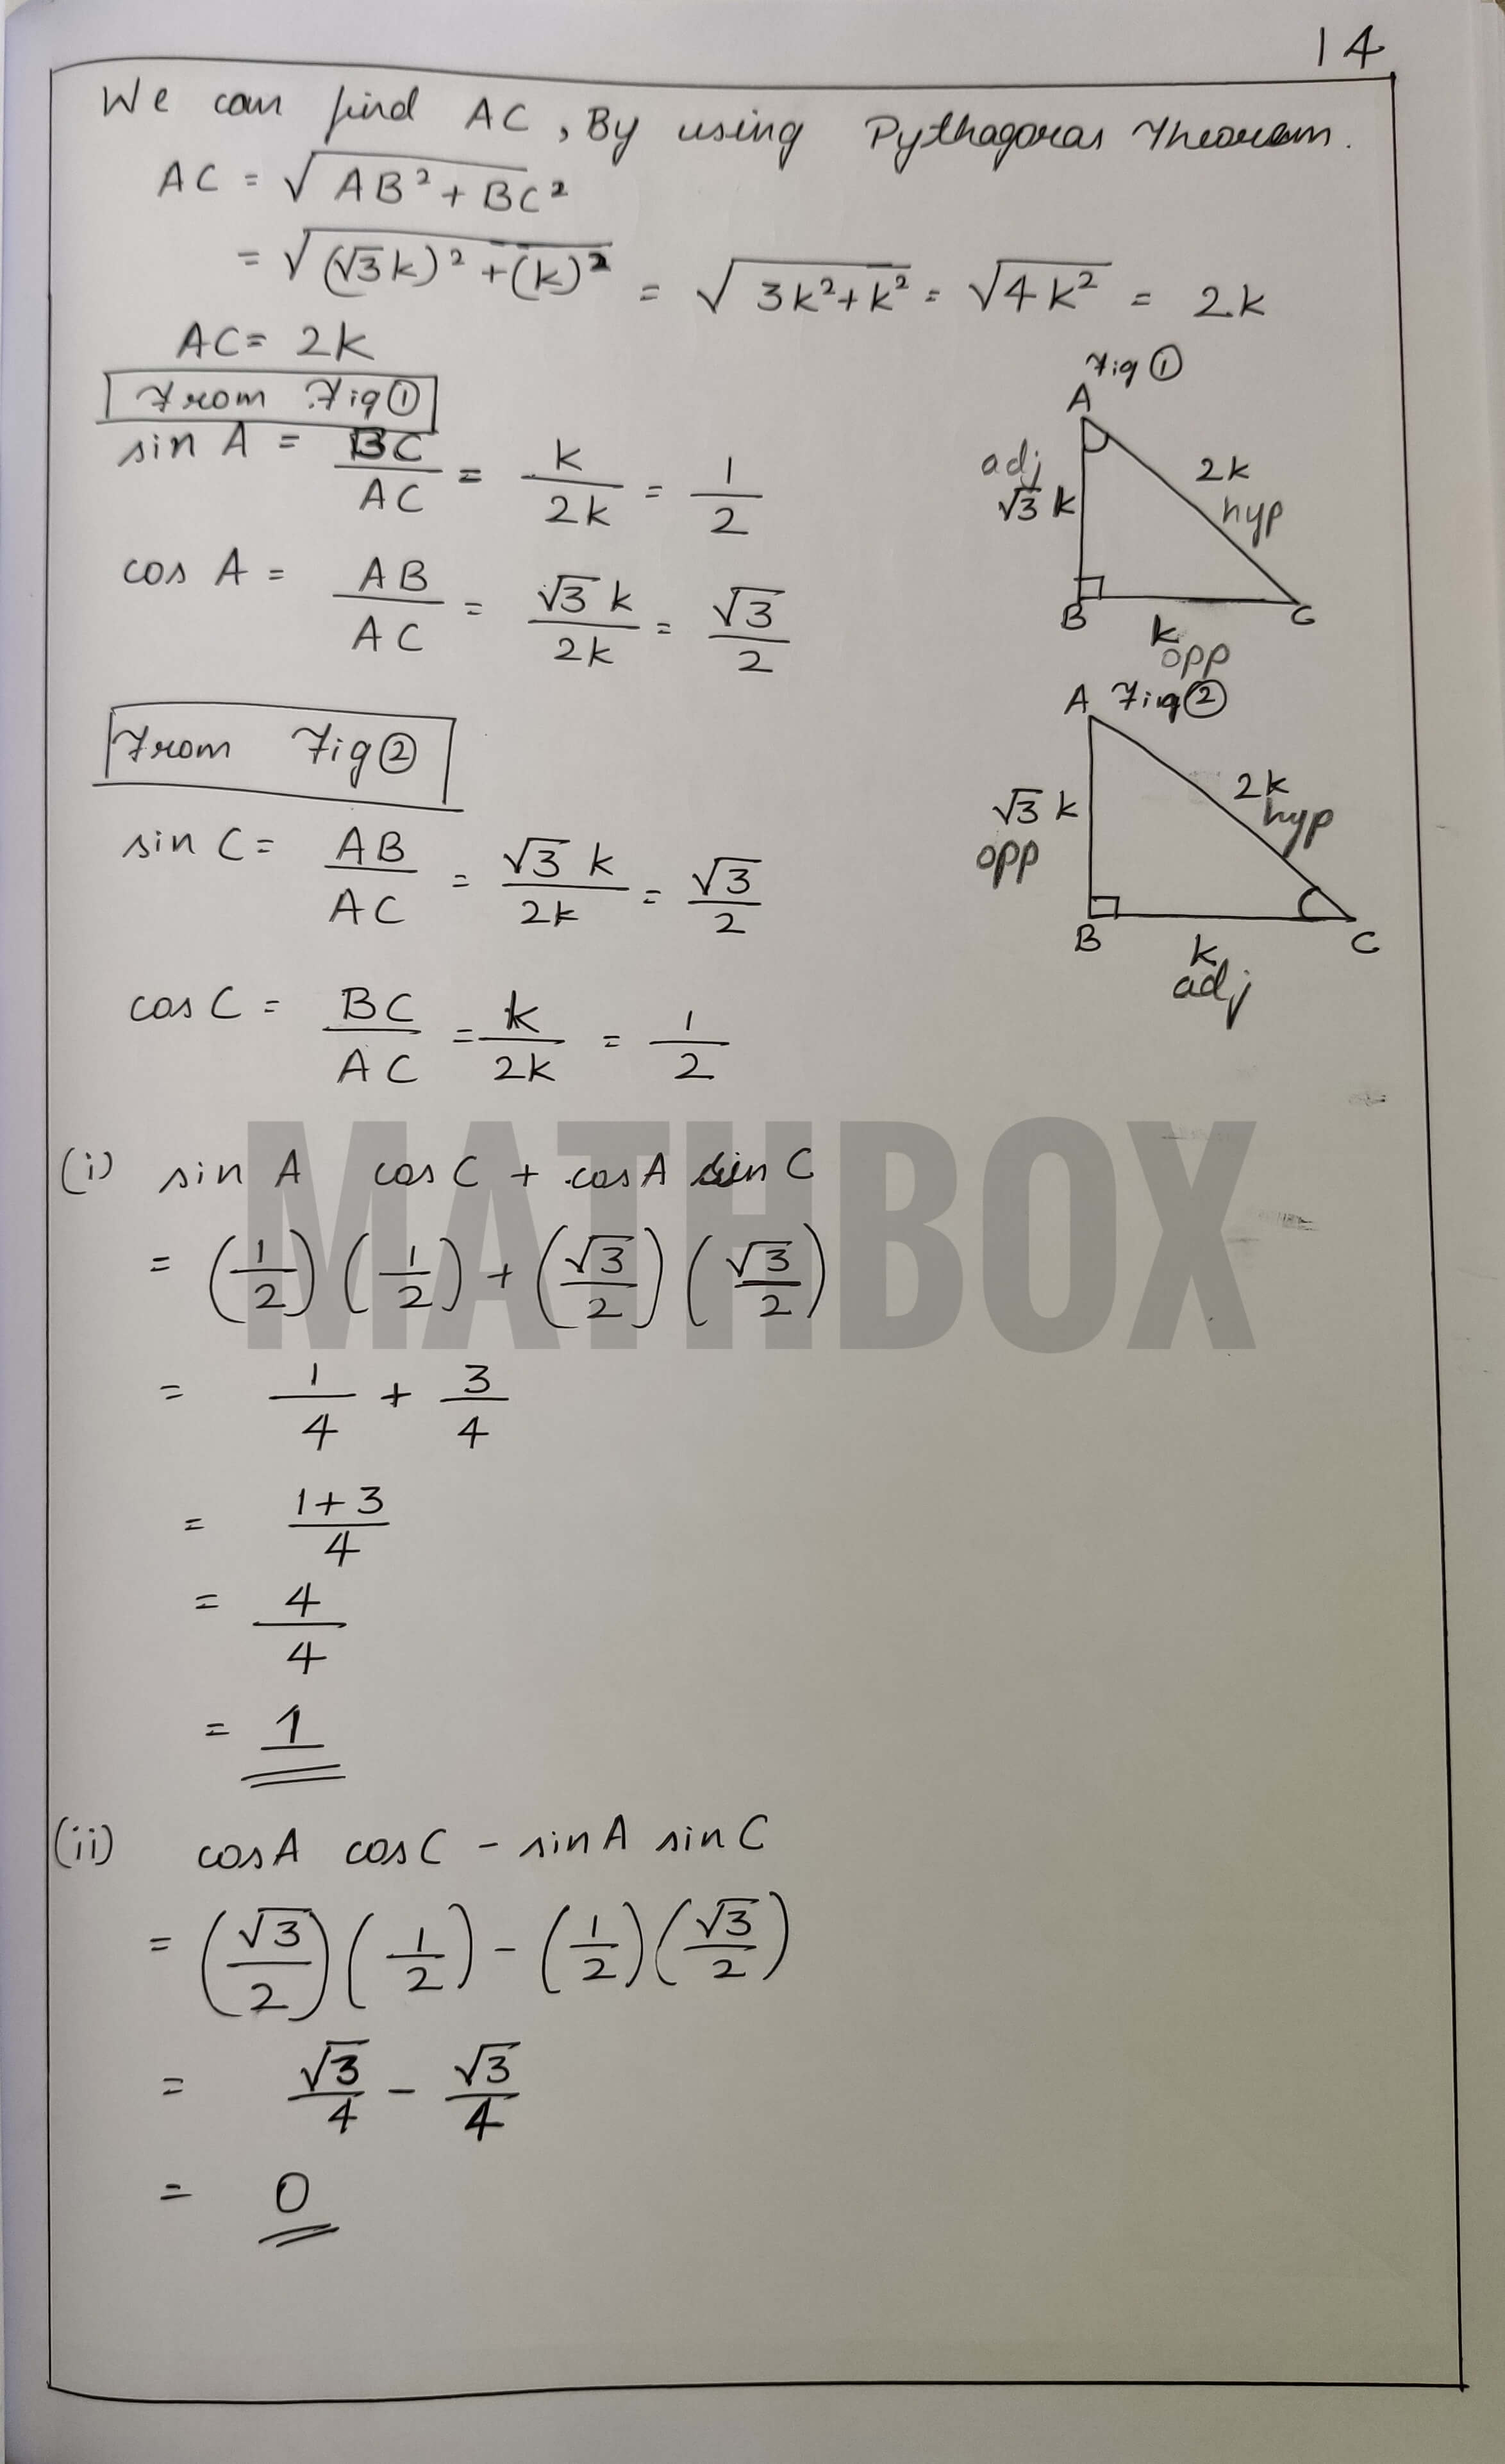 14
We can find AC, By using Pythagoras Theorem.
AC = √(AB² + BC²)
= √((√3k)² + (k)²) = √(3k² + k²) = √(4k²) = 2k
AC = 2k
From Fig ①
sin A = BC/AC = k/2k = 1/2
cos A = AB/AC = √3 k/2k = √3/2
Fig ①
A
adj
√3 k
2k
hyp
B
C
k
opp
From Fig ②
sin C = AB/AC = √3 k/2k = √3/2
cos C = BC/AC = k/2k = 1/2
A Fig ②
√3 k
opp
2k
hyp
B
C
k
adj
MATHBOX
(i) sin A cos C + cos A sin C
= (1/2) (1/2) + (√3/2) (√3/2)
= 1/4 + 3/4
= 1+3/4
= 4/4
= 1
(ii) cos A cos C - sin A sin C
= (√3/2) (1/2) - (1/2) (√3/2)
= √3/4 - √3/4
= 0